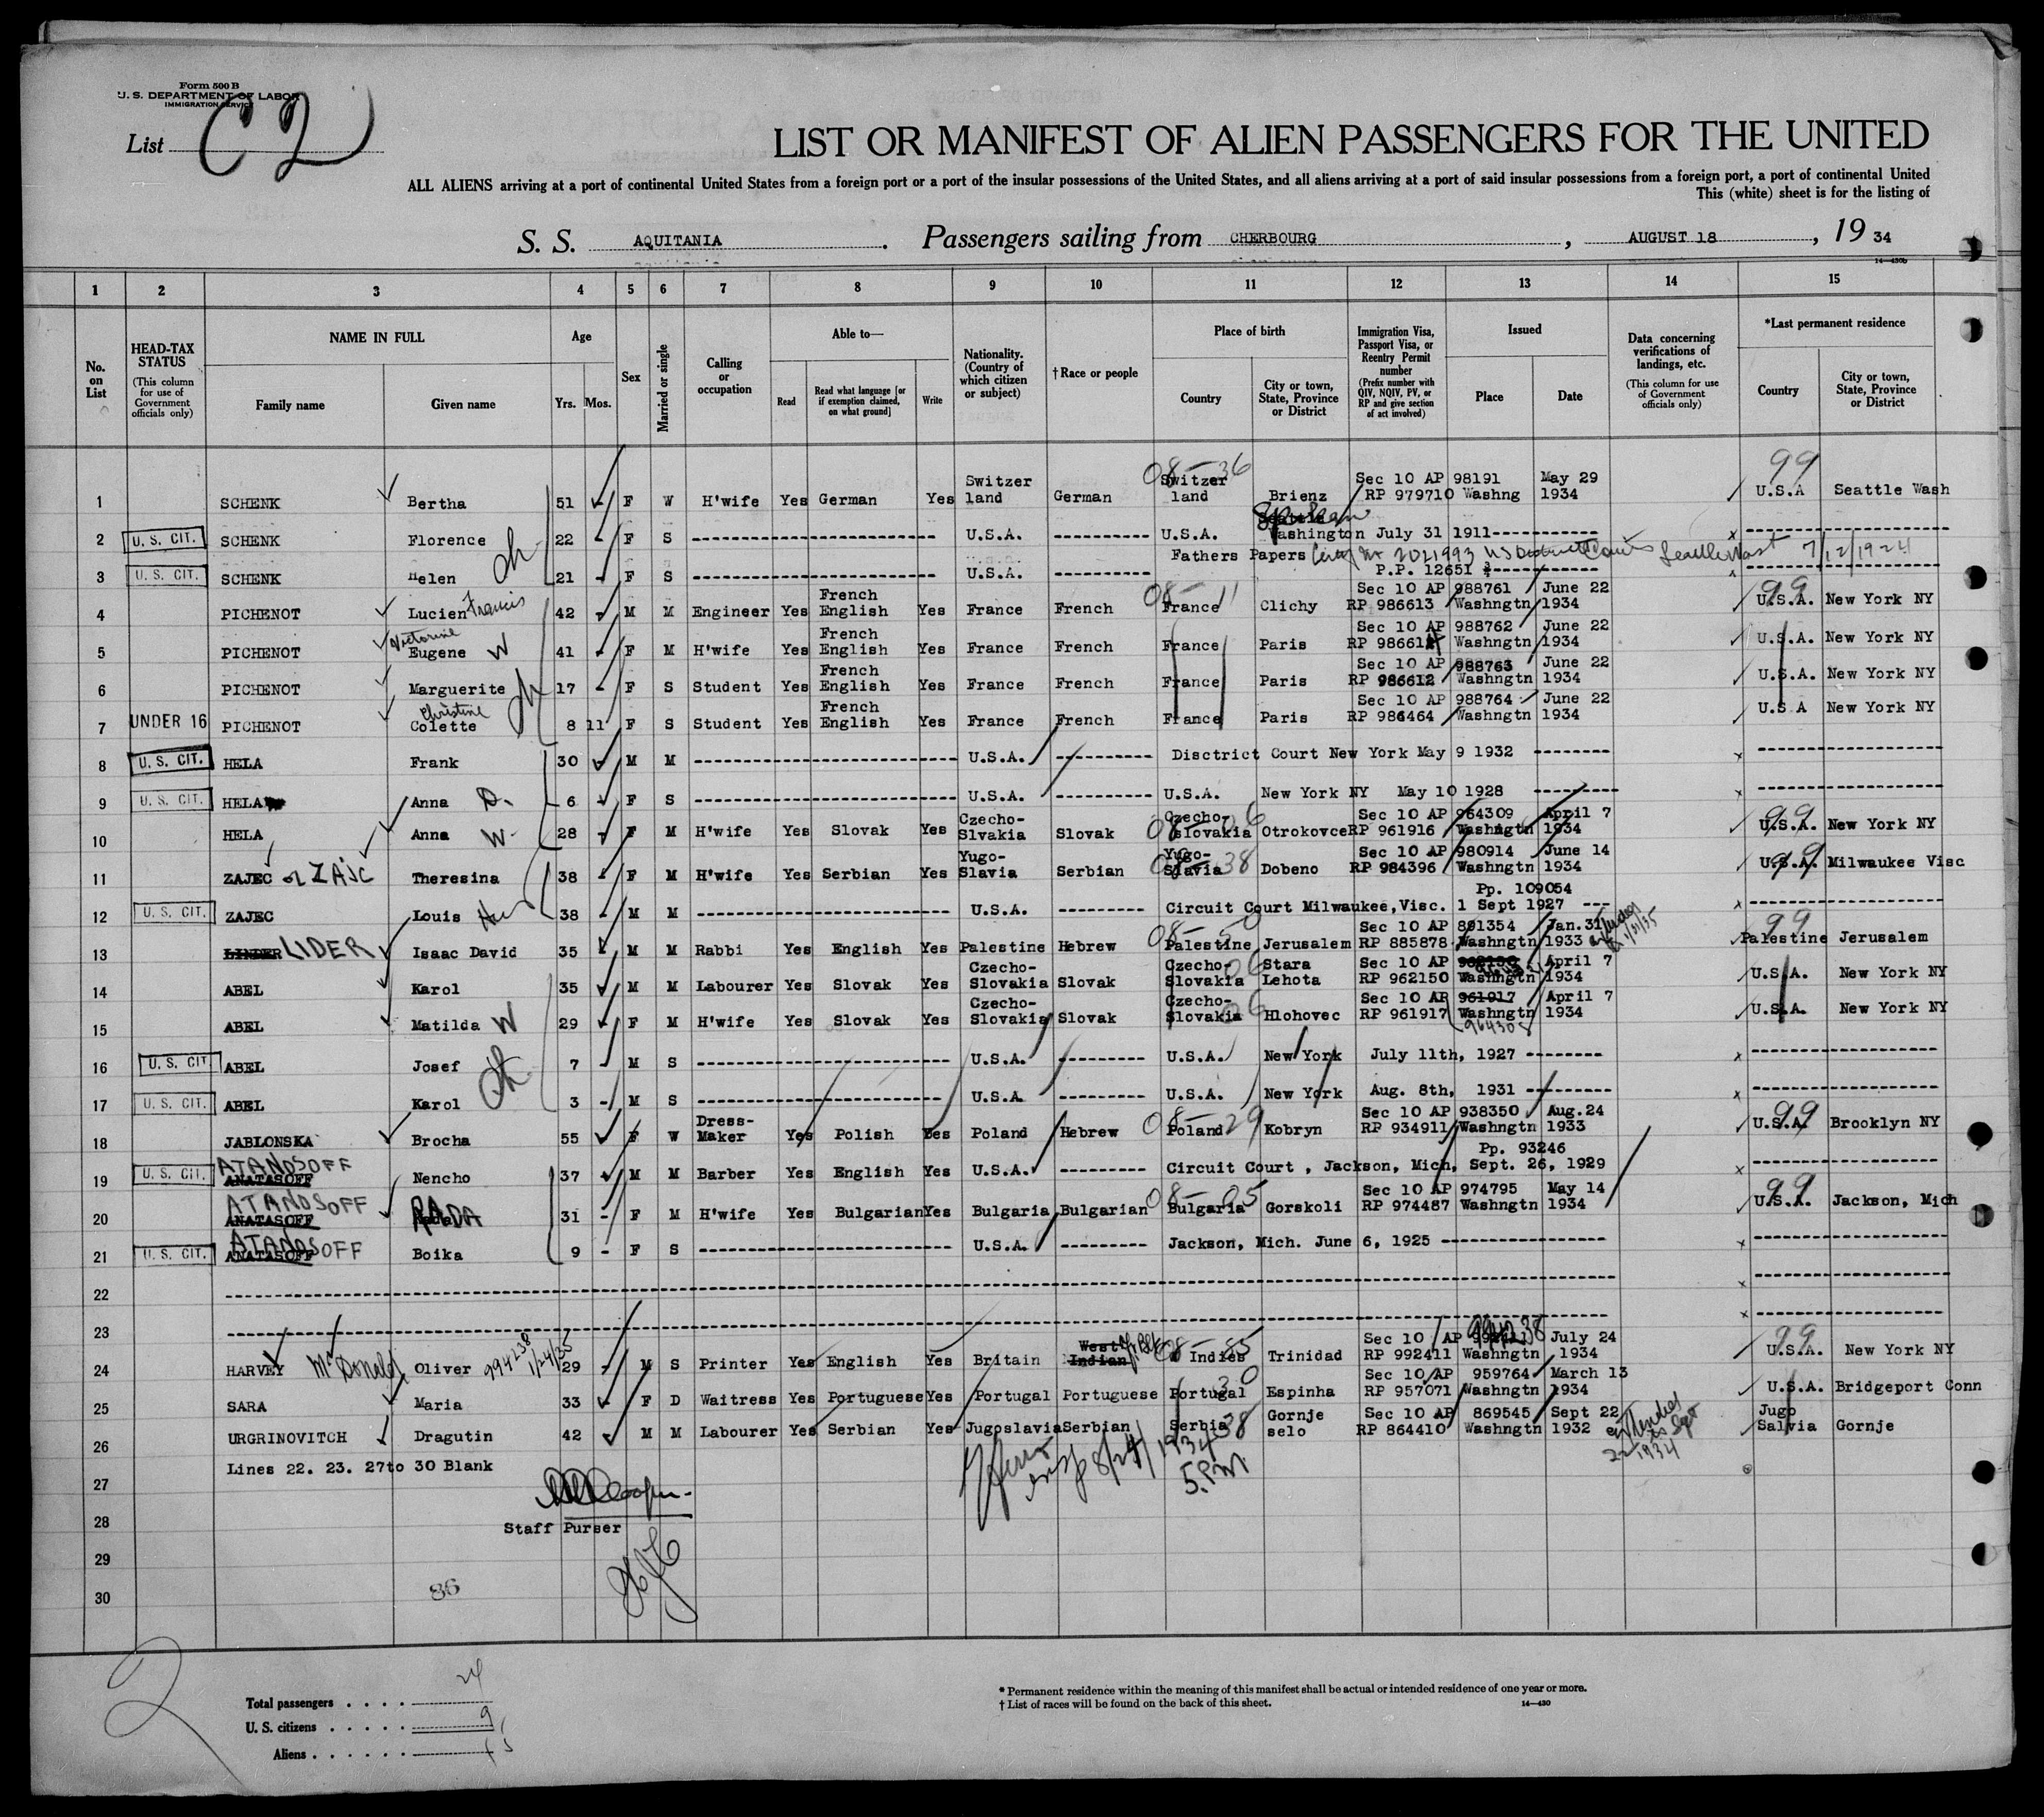 Form 500 B
U. S. DEPARTMENT OF LABOR
IMMIGRATION SERVICE
List C2
LIST OR MANIFEST OF ALIEN PASSENGERS FOR THE UNITED
ALL ALIENS arriving at a port of continental United States from a foreign port or a port of the insular possessions of the United States, and all aliens arriving at a port of said insular possessions from a foreign port, a port of continental United
This (white) sheet is for the listing of
S. S. AQUITANIA . Passengers sailing from CHERBOURG , AUGUST 18 , 19 34
14—430b
1 2 3 4 5 6 7 8 9 10 11 12 13 14 15
No. on List
HEAD-TAX STATUS (This column for use of Government officials only)
NAME IN FULL
Family name Given name
Age Yrs. Mos.
Sex
Married or single
Calling or occupation
Able to—
Read Read what language [or if exemption claimed, on what ground] Write
Nationality. (Country of which citizen or subject)
† Race or people
Place of birth
Country City or town, State, Province or District
Immigration Visa, Passport Visa, or Reentry Permit number (Prefix number with QIV, NQIV, PV, or RP and give section of act involved)
Issued
Place Date
Data concerning verifications of landings, etc. (This column for use of Government officials only)
*Last permanent residence
Country City or town, State, Province or District
1 SCHENK Bertha 51 F W H'wife Yes German Yes Switzer land German 08-36 Switzer land Brienz Sec 10 AP 98191 RP 979710 Washng May 29 1934 99 U.S.A Seattle Wash
2 U. S. CIT. SCHENK Florence 22 F S U.S.A. U.S.A. Washington July 31 1911
Fathers Papers 2021993 7/12/1924
3 U. S. CIT. SCHENK Helen 21 F S U.S.A. P.P. 12651
4 PICHENOT Lucien Francis 42 M M Engineer Yes French English Yes France French 08-11 France Clichy Sec 10 AP 988761 RP 986613 Washngtn June 22 1934 99 U.S.A. New York NY
5 PICHENOT Victorine Eugene W 41 F M H'wife Yes French English Yes France French France Paris Sec 10 AP 988762 RP 986614 Washngtn June 22 1934 U.S.A. New York NY
6 PICHENOT Marguerite 17 F S Student Yes French English Yes France French France Paris Sec 10 AP 988763 RP 986612 Washngtn June 22 1934 U.S.A. New York NY
7 UNDER 16 PICHENOT Christine Colette 8 11 F S Student Yes French English Yes France French France Paris Sec 10 AP 988764 RP 986464 Washngtn June 22 1934 U.S A New York NY
8 U. S. CIT. HELA Frank 30 M M U.S.A. Disctrict Court New York May 9 1932
9 U. S. CIT. HELA Anna D. 6 F S U.S.A. U.S.A. New York NY May 10 1928
10 HELA Anna W 28 F M H'wife Yes Slovak Yes Czecho-Slvakia Slovak 08-06 Czecho-Slovakia Otrokovce Sec 10 AP 964309 RP 961916 Washngtn April 7 1934 99 U.S.A. New York NY
11 ZAJEC or ZAJC Theresina 38 F M H'wife Yes Serbian Yes Yugo-Slavia Serbian 08-38 Yugo-Slavia Dobeno Sec 10 AP 980914 RP 984396 Washngtn June 14 1934 99 U.S.A. Milwaukee Visc
Pp. 109054
12 U. S. CIT. ZAJEC Louis 38 M M U.S.A. Circuit Court Milwaukee, Visc. 1 Sept 1927
13 LINDER LIDER Isaac David 35 M M Rabbi Yes English Yes Palestine Hebrew 08-50 Palestine Jerusalem Sec 10 AP 891354 RP 885878 Washngtn Jan.31 1933 99 Palestine Jerusalem
14 ABEL Karol 35 M M Labourer Yes Slovak Yes Czecho-Slovakia Slovak 06 Czecho-Slovakia Stara Lehota Sec 10 AP RP 962150 Washngtn April 7 1934 U.S.A. New York NY
15 ABEL Matilda W 29 F M H'wife Yes Slovak Yes Czecho-Slovakia Slovak 06 Czecho-Slovakia Hlohovec Sec 10 AP 961917 RP 961917 Washngtn 964308 April 7 1934 U.S.A. New York NY
16 U. S. CIT. ABEL Josef 7 M S U.S.A. U.S.A. New York July 11th, 1927
17 U. S. CIT. ABEL Karol 3 M S U.S.A. U.S.A. New York Aug. 8th, 1931
18 JABLONSKA Brocha 55 F W Dress-Maker Yes Polish Yes Poland Hebrew 08-29 Poland Kobryn Sec 10 AP 938350 RP 934911 Washngtn Aug.24 1933 99 U.S.A. Brooklyn NY
Pp. 93246
19 U. S. CIT. ATANOSOFF ANATASOFF Nencho 37 M M Barber Yes English Yes U.S.A. Circuit Court , Jackson, Mich, Sept. 26, 1929
20 ATANOSOFF ANATASOFF RADA 31 F M H'wife Yes Bulgarian Yes Bulgaria Bulgarian 08-05 Bulgaria Gorskoli Sec 10 AP 974795 RP 974487 Washngtn May 14 1934 99 U.S.A. Jackson, Mich
21 U. S. CIT. ATANOSOFF ANATASOFF Boika 9 F S U.S.A. Jackson, Mich. June 6, 1925
22
23
24 HARVEY McDonald Oliver 994238 1/24/35 29 M S Printer Yes English Yes Britain West Indian 08-85 W Indies Trinidad Sec 10 AP 994238 RP 992411 Washngtn July 24 1934 99 U.S.A. New York NY
25 SARA Maria 33 F D Waitress Yes Portuguese Yes Portugal Portuguese 30 Portugal Espinha Sec 10 AP 959764 RP 957071 Washngtn March 13 1934 U.S.A. Bridgeport Conn
26 URGRINOVITCH Dragutin 42 M M Labourer Yes Serbian Yes Jugoslavia Serbian 38 Serbia Gornje selo Sec 10 AP 869545 RP 864410 Washngtn Sept 22 1932 Jugo Salvia Gornje
Lines 22. 23. 27to 30 Blank
27
8/24/1934
5.P.M.
28 Staff Purser
29
30
86
2
Total passengers . . . . 24
U. S. citizens . . . . . 9
Aliens . . . . . . 15
* Permanent residence within the meaning of this manifest shall be actual or intended residence of one year or more.
† List of races will be found on the back of this sheet.
14—430